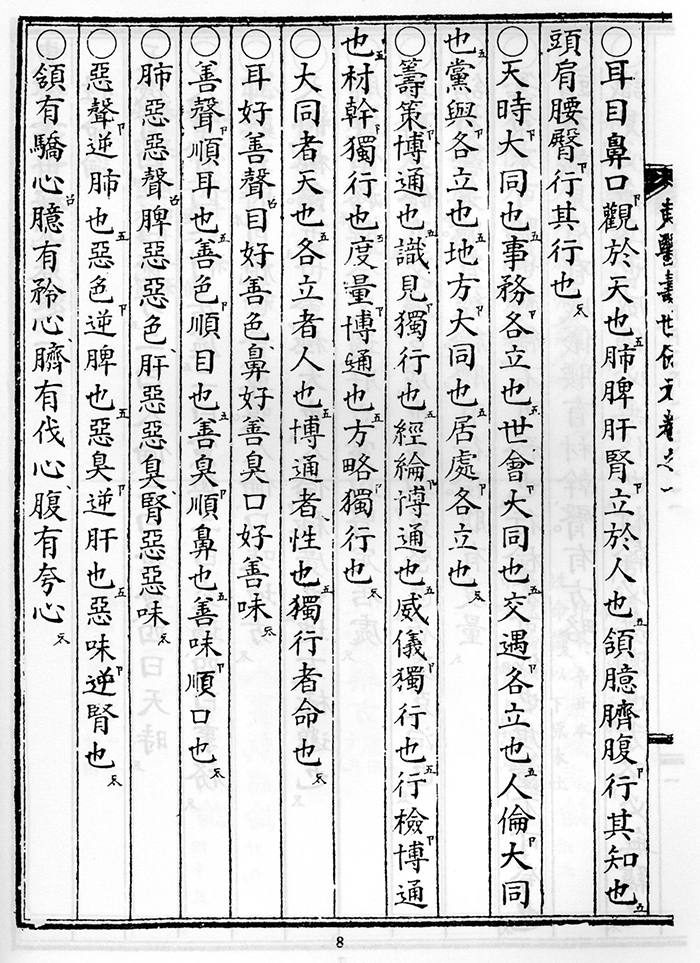 東醫壽世保元卷之一
○耳目鼻口觀於天也肺脾肝腎立於人也頷臆臍腹行其知也
頭肩腰臀行其行也
○天時大同也事務各立也世會大同也交遇各立也人倫大同
也黨與各立也地方大同也居處各立也
○籌策博通也識見獨行也經綸博通也威儀獨行也行檢博通
也材幹獨行也度量博通也方略獨行也
○大同者天也各立者人也博通者性也獨行者命也
○耳好善聲目好善色鼻好善臭口好善味
○善聲順耳也善色順目也善臭順鼻也善味順口也
○肺惡惡聲脾惡惡色肝惡惡臭腎惡惡味
○惡聲逆肺也惡色逆脾也惡臭逆肝也惡味逆腎也
○頷有驕心臆有矜心臍有伐心腹有夸心
8